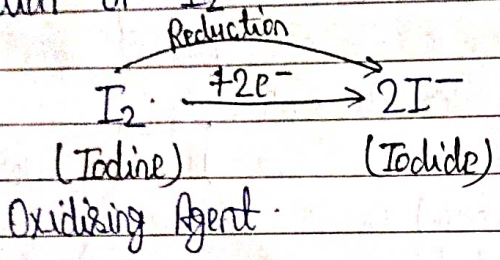 Reduction
I₂ +2e⁻ → 2I⁻
(Iodine) (Iodide)
Oxidising Agent.